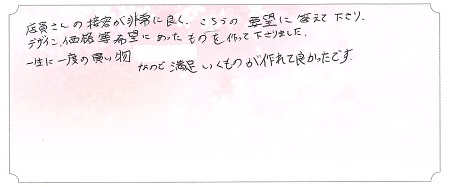 店員さんの接客が非常に良く、こちらの要望に答えて下さり、
デザイン、価格等希望にあったものを作って下さりました。
一生に一度の買い物なので満足いくものが作れて良かったです。